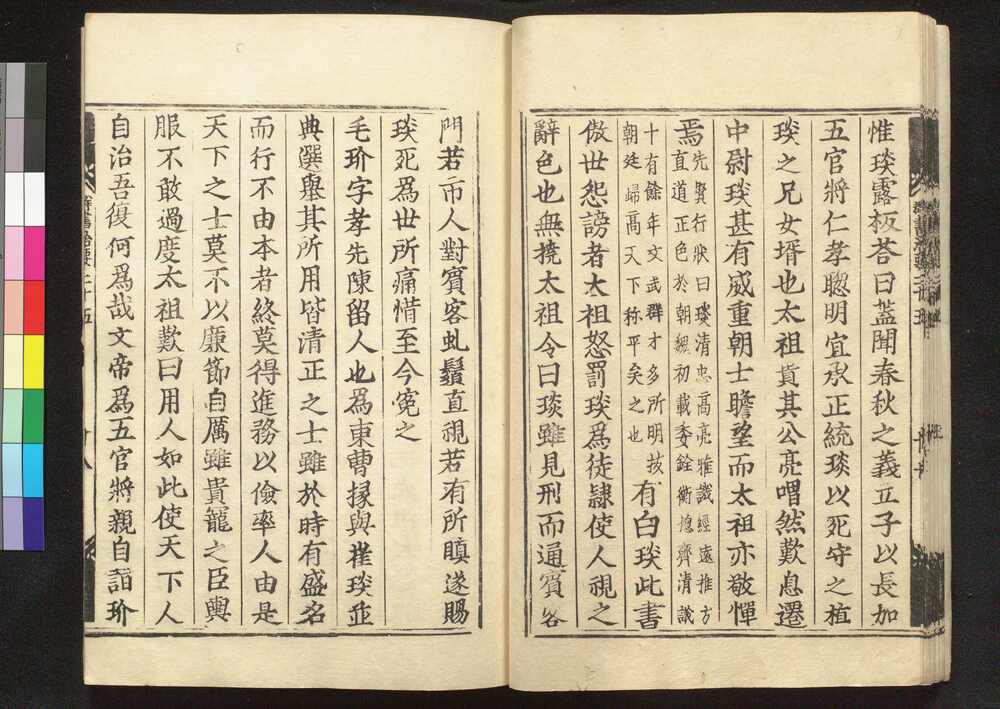 惟琰露板荅曰蓋聞春秋之義立子以長加
五官將仁孝聰明宜承正統琰以死守之植
琰之兄女壻也太祖貴其公亮喟然歎息遷
中尉琰甚有威重朝士瞻望而太祖亦敬憚
焉先賢行狀曰琰清忠高亮雅識經遠推方
直道正色於朝魏初載委銓衡揔齊清議
十有餘年文武群才多所明拔
朝廷歸高天下称平矣之也
有白琰此書
傲世怨謗者太祖怒罰琰爲徒隷使人視之
辭色也無撓太祖令曰琰雖見刑而通賓客
門若市人對賓客虬鬚直視若有所瞋遂賜
琰死爲世所痛惜至今寃之
毛玠字孝先陳留人也爲東曹掾與崔琰並
典選擧其所用皆清正之士雖於時有盛名
而行不由本者終莫得進務以儉率人由是
天下之士莫不以廉節自厲雖貴寵之臣輿
服不敢過度太祖歎曰用人如此使天下人
自治吾復何爲哉文帝爲五官將親自詣玠